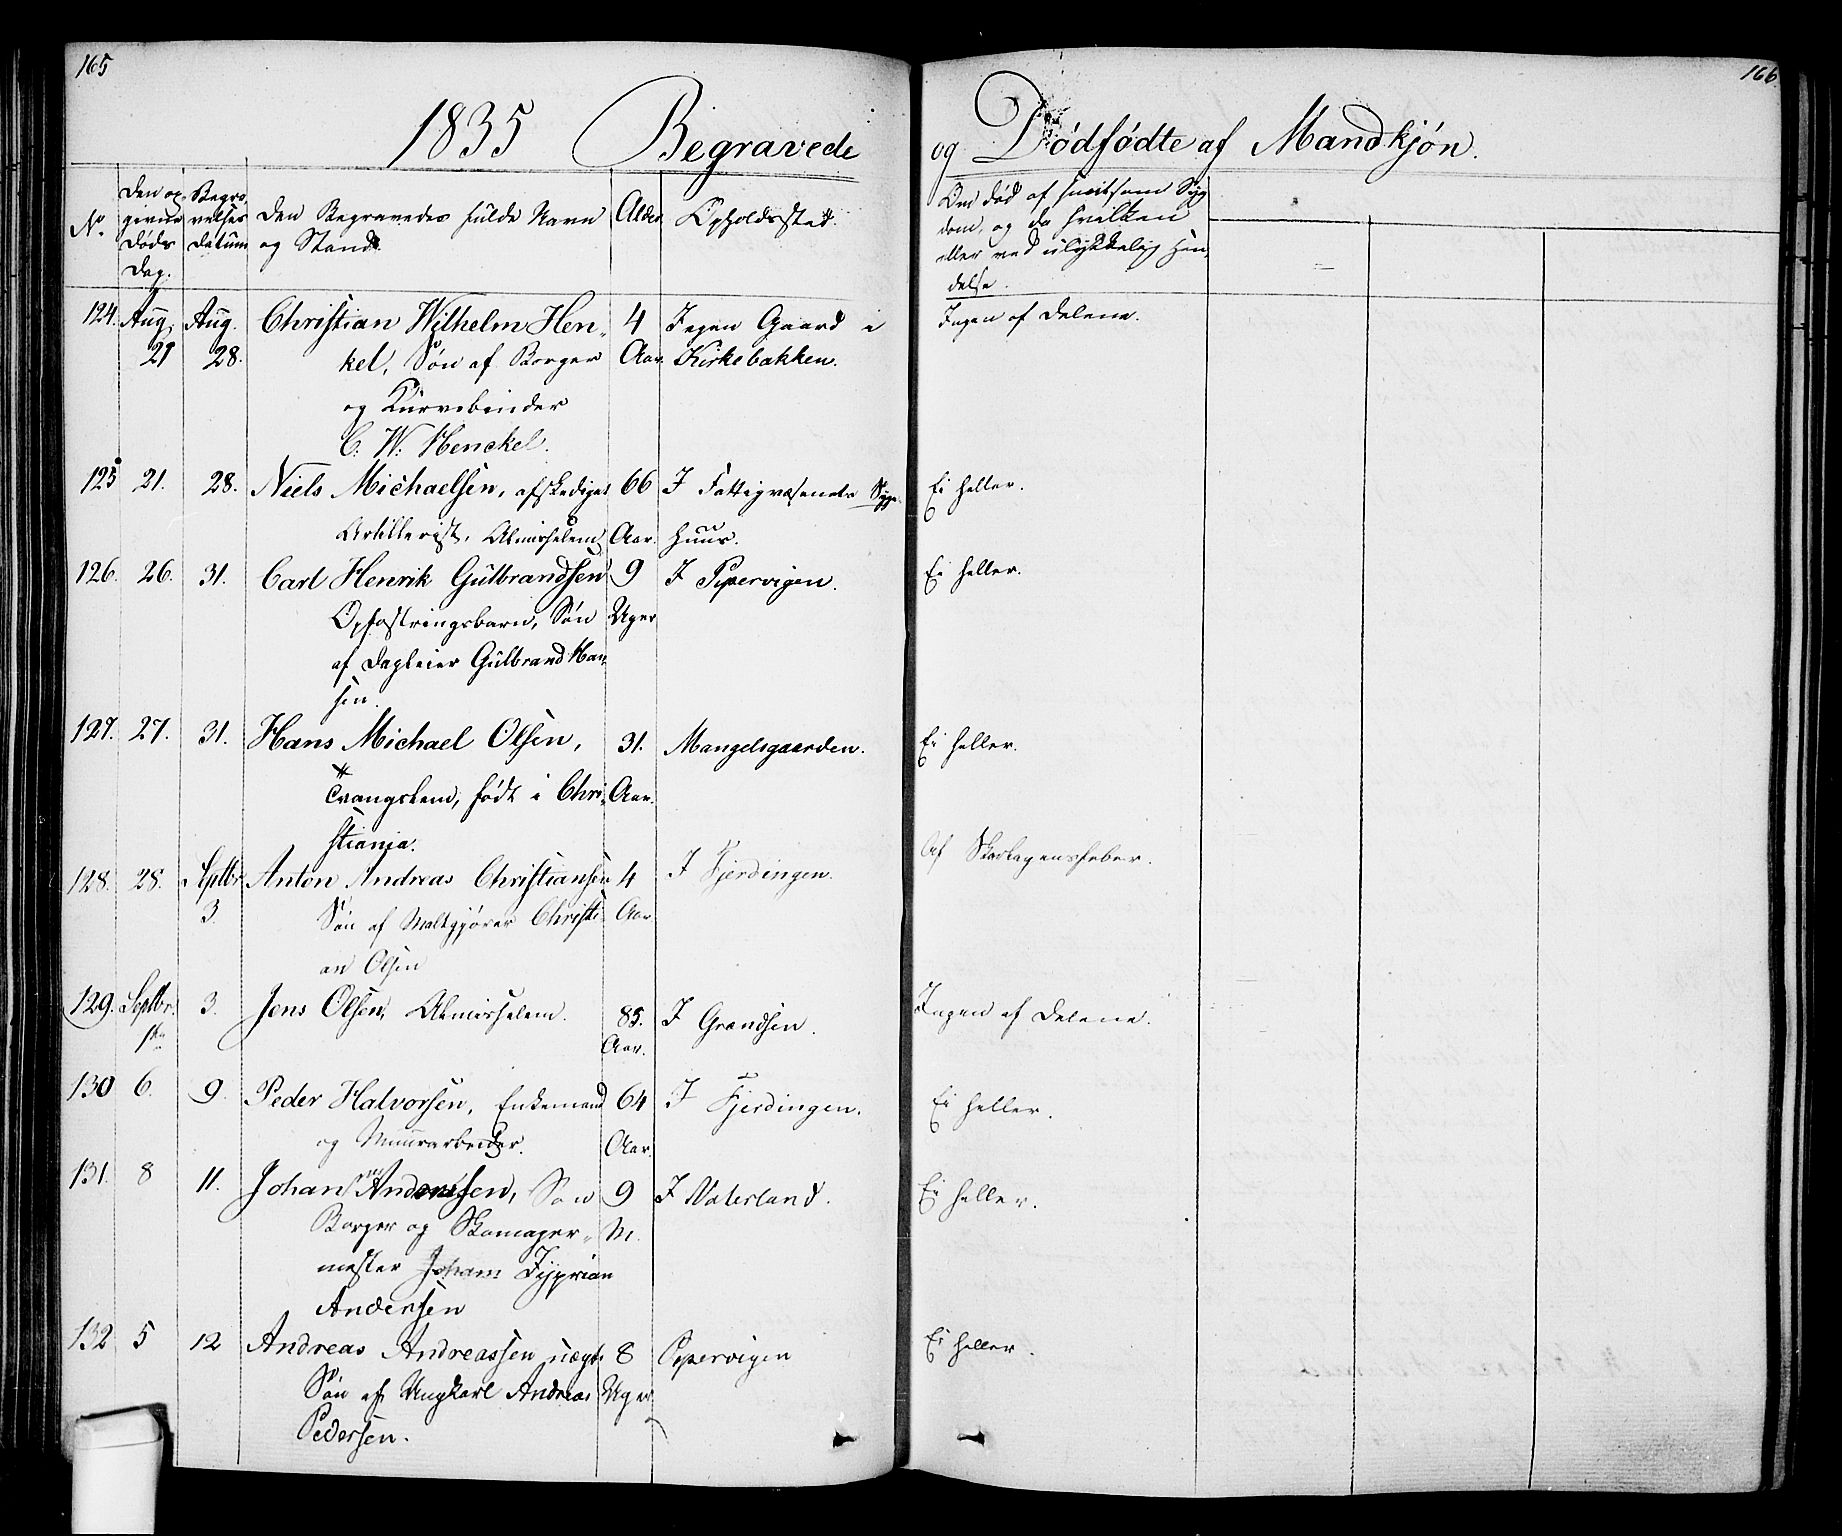 165
1835 Begravede
No.
Den op-
givne
Døds
Dag.
Begra-
velses
Datum
Den Begravedes fulde Navn
og Stand.
Alder
Opholdssted.
124. Aug. Aug. Christian Wilhelm Hen- 4 I egen Gaard i
21 28. kel, Søn af Borger Aar Kirkebakken.
og Kurvebinder
C. W. Henckel.
125 21. 28. Niels Michaelsen, afskediget 66 I Fattigvæsenets Syge-
Artillerist, Almislem Aar. huus.
126. 26. 31. Carl Henrik Gulbrandsen 9 I Pipervigen.
Opfostringsbarn, Søn Uger
af Dagleier Gulbrand Han-
sen.
127. 27. 31. Hans Michael Olsen, 31. Mangelsgaarden.
Tvangslem, født i Chri- Aar.
stiania.
128. 28. Septbr Anton Andreas Christiansen 4 I Fjerdingen.
3. Søn af Maltgjører Christi- Aar
an Olsen
129. Septbr. 3. Jens Olsen, Almislem. 85. I Grændsen.
1ste Aar.
130 6. 9. Peder Halvorsen, Enkemand 64 I Fjerdingen.
og Muurarbeider. Aar.
131. 8 11. Johan Andersen, Søn 9 I Vaterland.
Borger og Skomager- M.
mester Johan Zyprian
Andersen
132 5 12 Andreas Andreassen uægte 8 Pipervigen
Søn af Ungkarl Andreas Uger
Pedersen.
166
og Dødfødte af Mandkjøn.
Om død af smitsom Syg-
dom, og da hvilken
eller ved ulykkelig Hæn-
delse.
Ingen af Delene.
Ei heller.
Ei heller.
Ei heller.
Af Skarlagensfeber.
Ingen af Delene.
Ei heller.
Ei heller.
Ei heller.